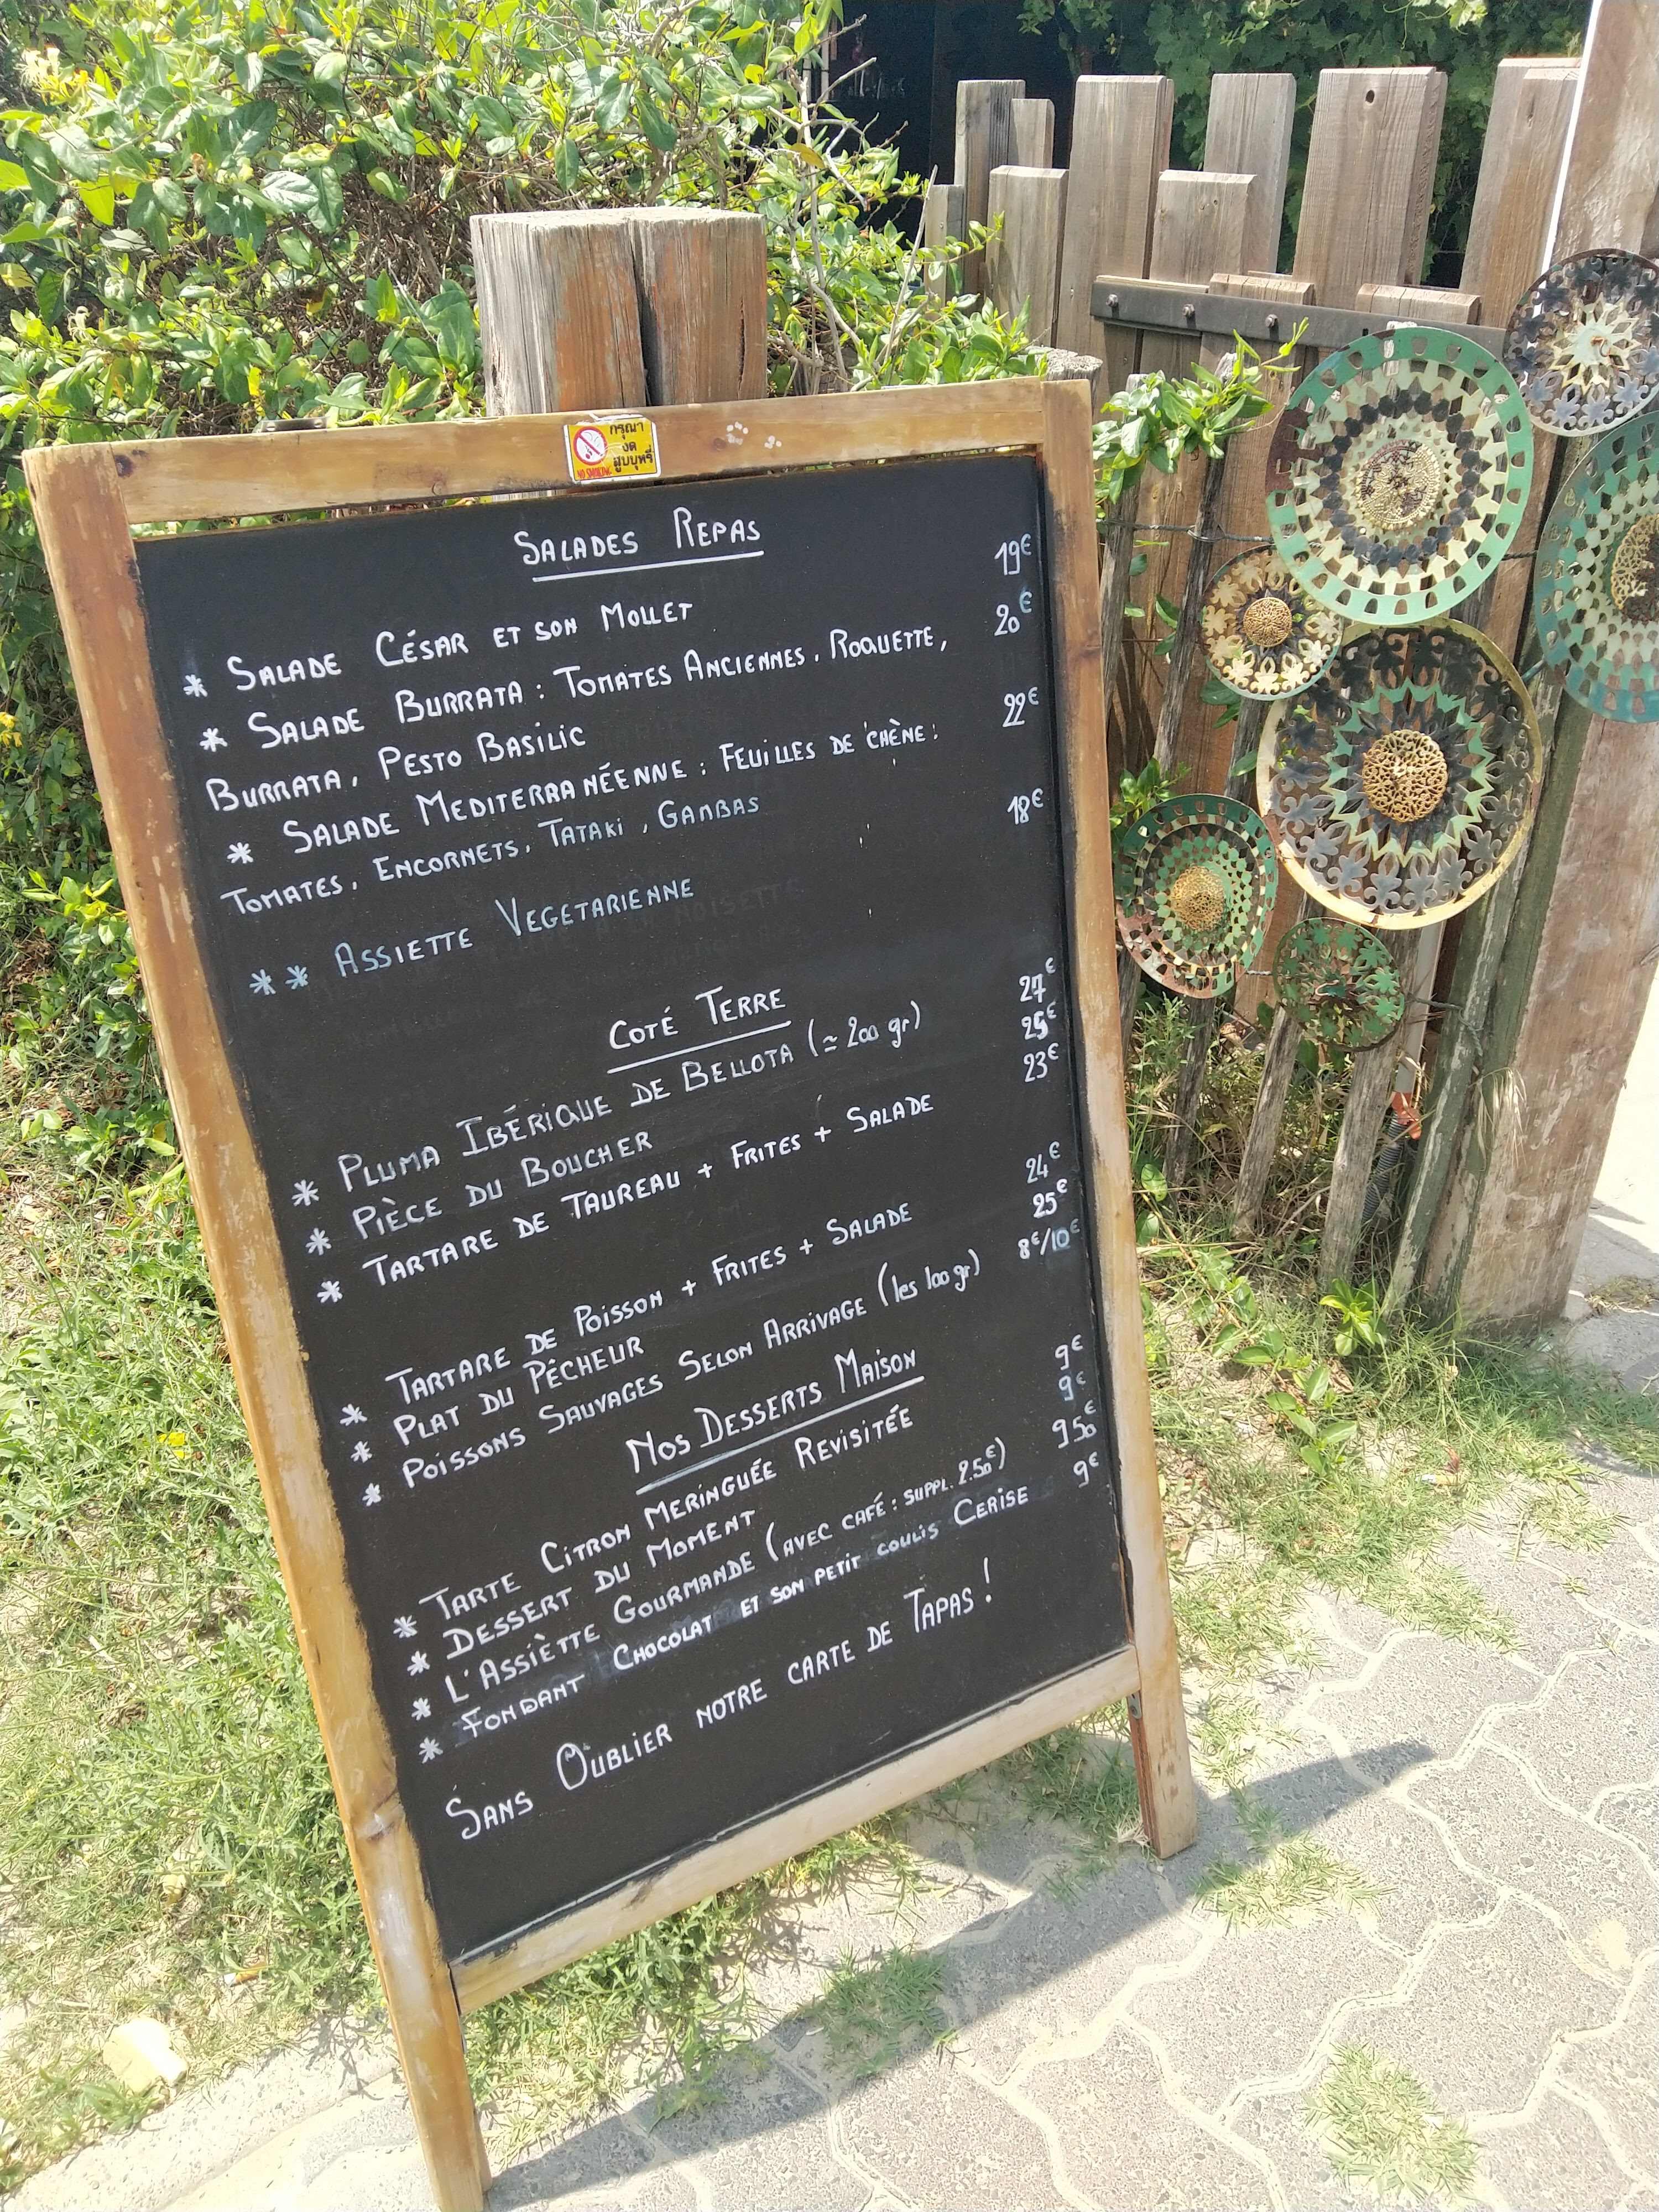 กรุณา
งด
สูบบุหรี่
NO SMOKING
SALADES REPAS
* SALADE CÉSAR ET SON MOLLET 19€
* SALADE BURRATA : TOMATES ANCIENNES, ROQUETTE, 20€
BURRATA, PESTO BASILIC
* SALADE MEDITERRANÉENNE : FEUILLES DE CHÈNE, 22€
TOMATES, ENCORNETS, TATAKI, GAMBAS
** ASSIETTE VEGETARIENNE 18€
COTÉ TERRE
* PLUMA IBÉRIQUE DE BELLOTA (≃ 200 gr) 27€
* PIÈCE DU BOUCHER 25€
* TARTARE DE TAUREAU + FRITES + SALADE 23€
* TARTARE DE POISSON + FRITES + SALADE 24€
* PLAT DU PÉCHEUR 25€
* POISSONS SAUVAGES SELON ARRIVAGE (les 100 gr) 8€/10€
NOS DESSERTS MAISON
* TARTE CITRON MERINGUÉE REVISITÉE 9€
* DESSERT DU MOMENT 9€
* L'ASSIÈTTE GOURMANDE (AVEC CAFÉ : SUPPL. 2.50€) 9€50
* FONDANT CHOCOLAT ET SON PETIT COULIS CERISE 9€
SANS OUBLIER NOTRE CARTE DE TAPAS !